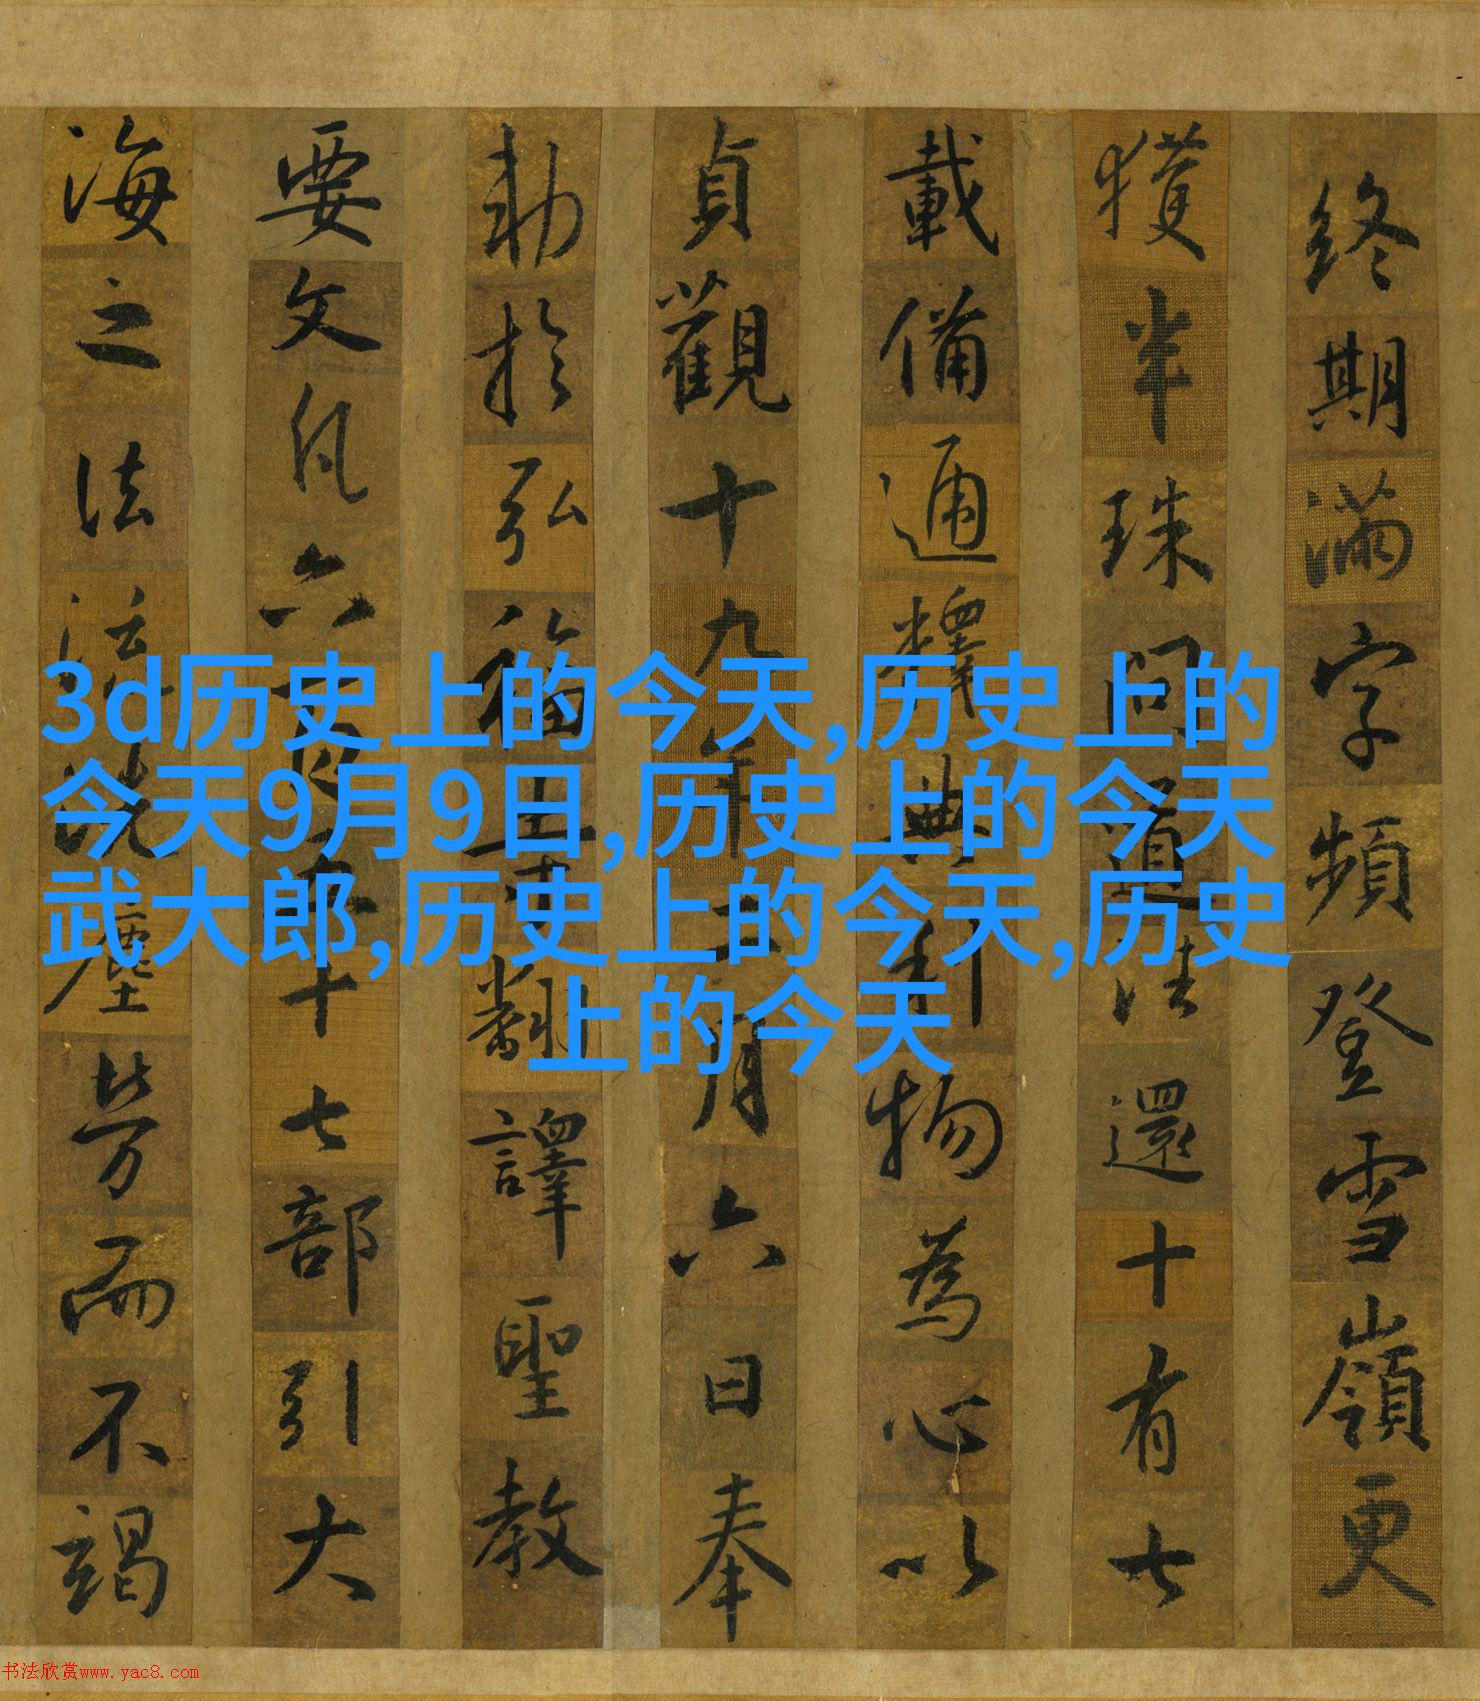 終期滿字頻登雪嶺更
獲半珠問道法還十有七
載備通釋典利物為心以
貞觀十九年二月六日奉
勅於弘福寺翻譯聖教
要文凡六百五十七部引大
海之法流洗塵勞而不竭
3d历史上的今天,历史上的
今天9月9日,历史上的今天
武大郎,历史上的今天,历史
上的今天
书法欣赏www.yac8.com